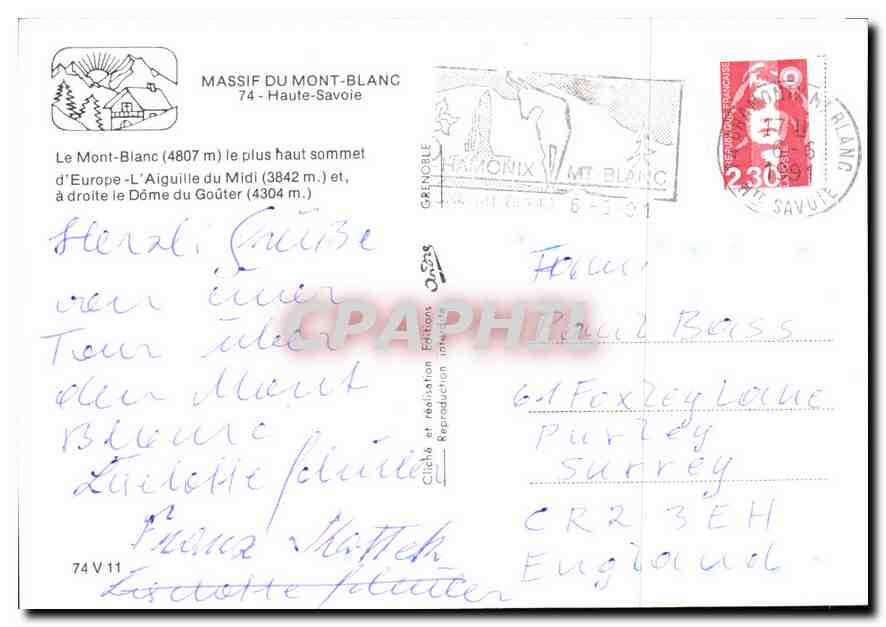 MASSIF DU MONT-BLANC
74 - Haute-Savoie
Le Mont-Blanc (4807 m) le plus haut sommet
d'Europe - L'Aiguille du Midi (3842 m.) et,
à droite le Dôme du Goûter (4304 m.)
Herzli Grüße
von einer
Tour über
den Mont
Blanc
Liselotte
Franz
Liselotte
74 V 11
GRENOBLE
Cliché et réalisation Editions André
Reproduction interdite
CPAPHIL
HAMONIX MT BLANC
6-5 91
MT BLANC
HTE SAVOIE
17 H
6-5
91
REPUBLIQUE FRANÇAISE
LA POSTE
2,30
Paul Bass
61 Foxley Lane
Purley
Surrey
CR2 3EH
England